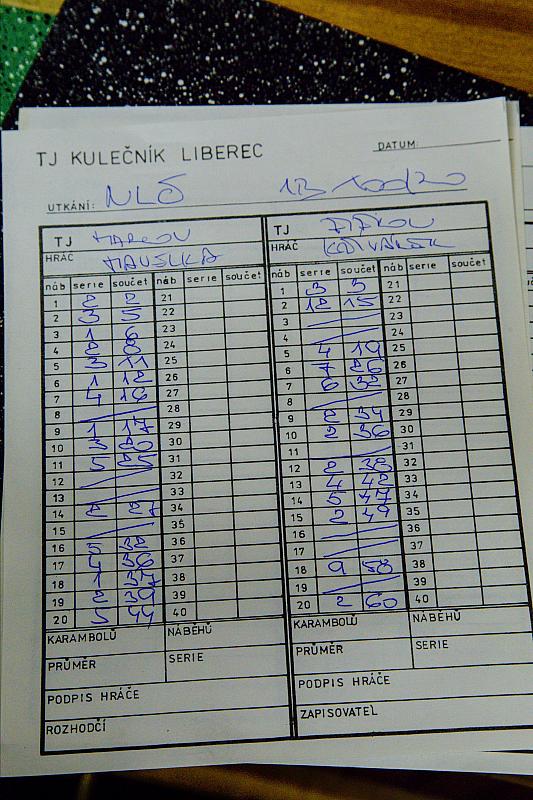 TJ KULEČNÍK LIBEREC
DATUM:
UTKÁNÍ: NLÖ 1B
TJ
HRÁČ HAVELKA
náb serie součet náb serie součet
1 2 2 21
2 3 5 22
3 1 6 23
4 2 8 24
5 3 11 25
6 1 12 26
7 4 16 27
8 28
9 1 17 29
10 3 20 30
11 5 25 31
12 32
13 33
14 2 27 34
15 35
16 5 32 36
17 4 36 37
18 1 37 38
19 2 39 39
20 5 44 40
KARAMBOLŮ NÁBĚHŮ
PRŮMĚR SERIE
PODPIS HRÁČE
ROZHODČÍ
TJ
HRÁČ
náb serie součet náb serie součet
1 3 3 21
2 12 15 22
3 23
4 24
5 4 19 25
6 7 26 26
7 6 32 27
8 28
9 2 34 29
10 2 36 30
11 31
12 2 38 32
13 4 42 33
14 5 47 34
15 2 49 35
16 36
17 37
18 9 58 38
19 39
20 2 60 40
KARAMBOLŮ NÁBĚHŮ
PRŮMĚR SERIE
PODPIS HRÁČE
ZAPISOVATEL